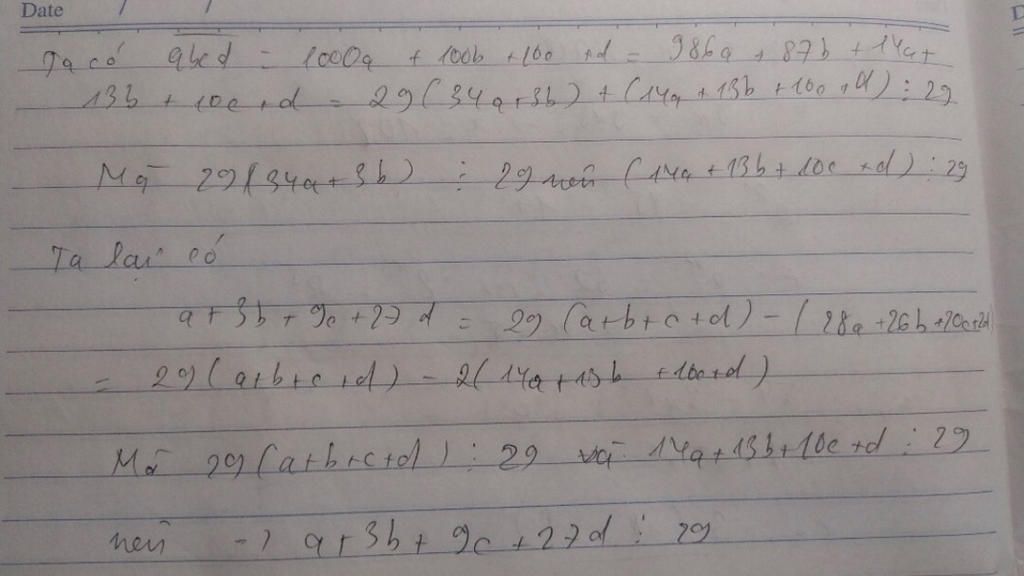 Date
Ta có abcd = 1000a + 100b + 10c + d = 986a + 87b + 14a +
13b + 10c + d = 29(34a+3b) + (14a + 13b + 10c + d) ⋮ 29
Mà 29(34a+3b) ⋮ 29 nên (14a + 13b + 10c + d) ⋮ 29
Ta lại có
a + 3b + 9c + 27d = 29(a+b+c+d) - (28a + 26b + 20c + 2d)
= 29(a+b+c+d) - 2(14a + 13b + 10c + d)
Mà 29(a+b+c+d) ⋮ 29 và 14a + 13b + 10c + d ⋮ 29
nên -> a + 3b + 9c + 27d ⋮ 29